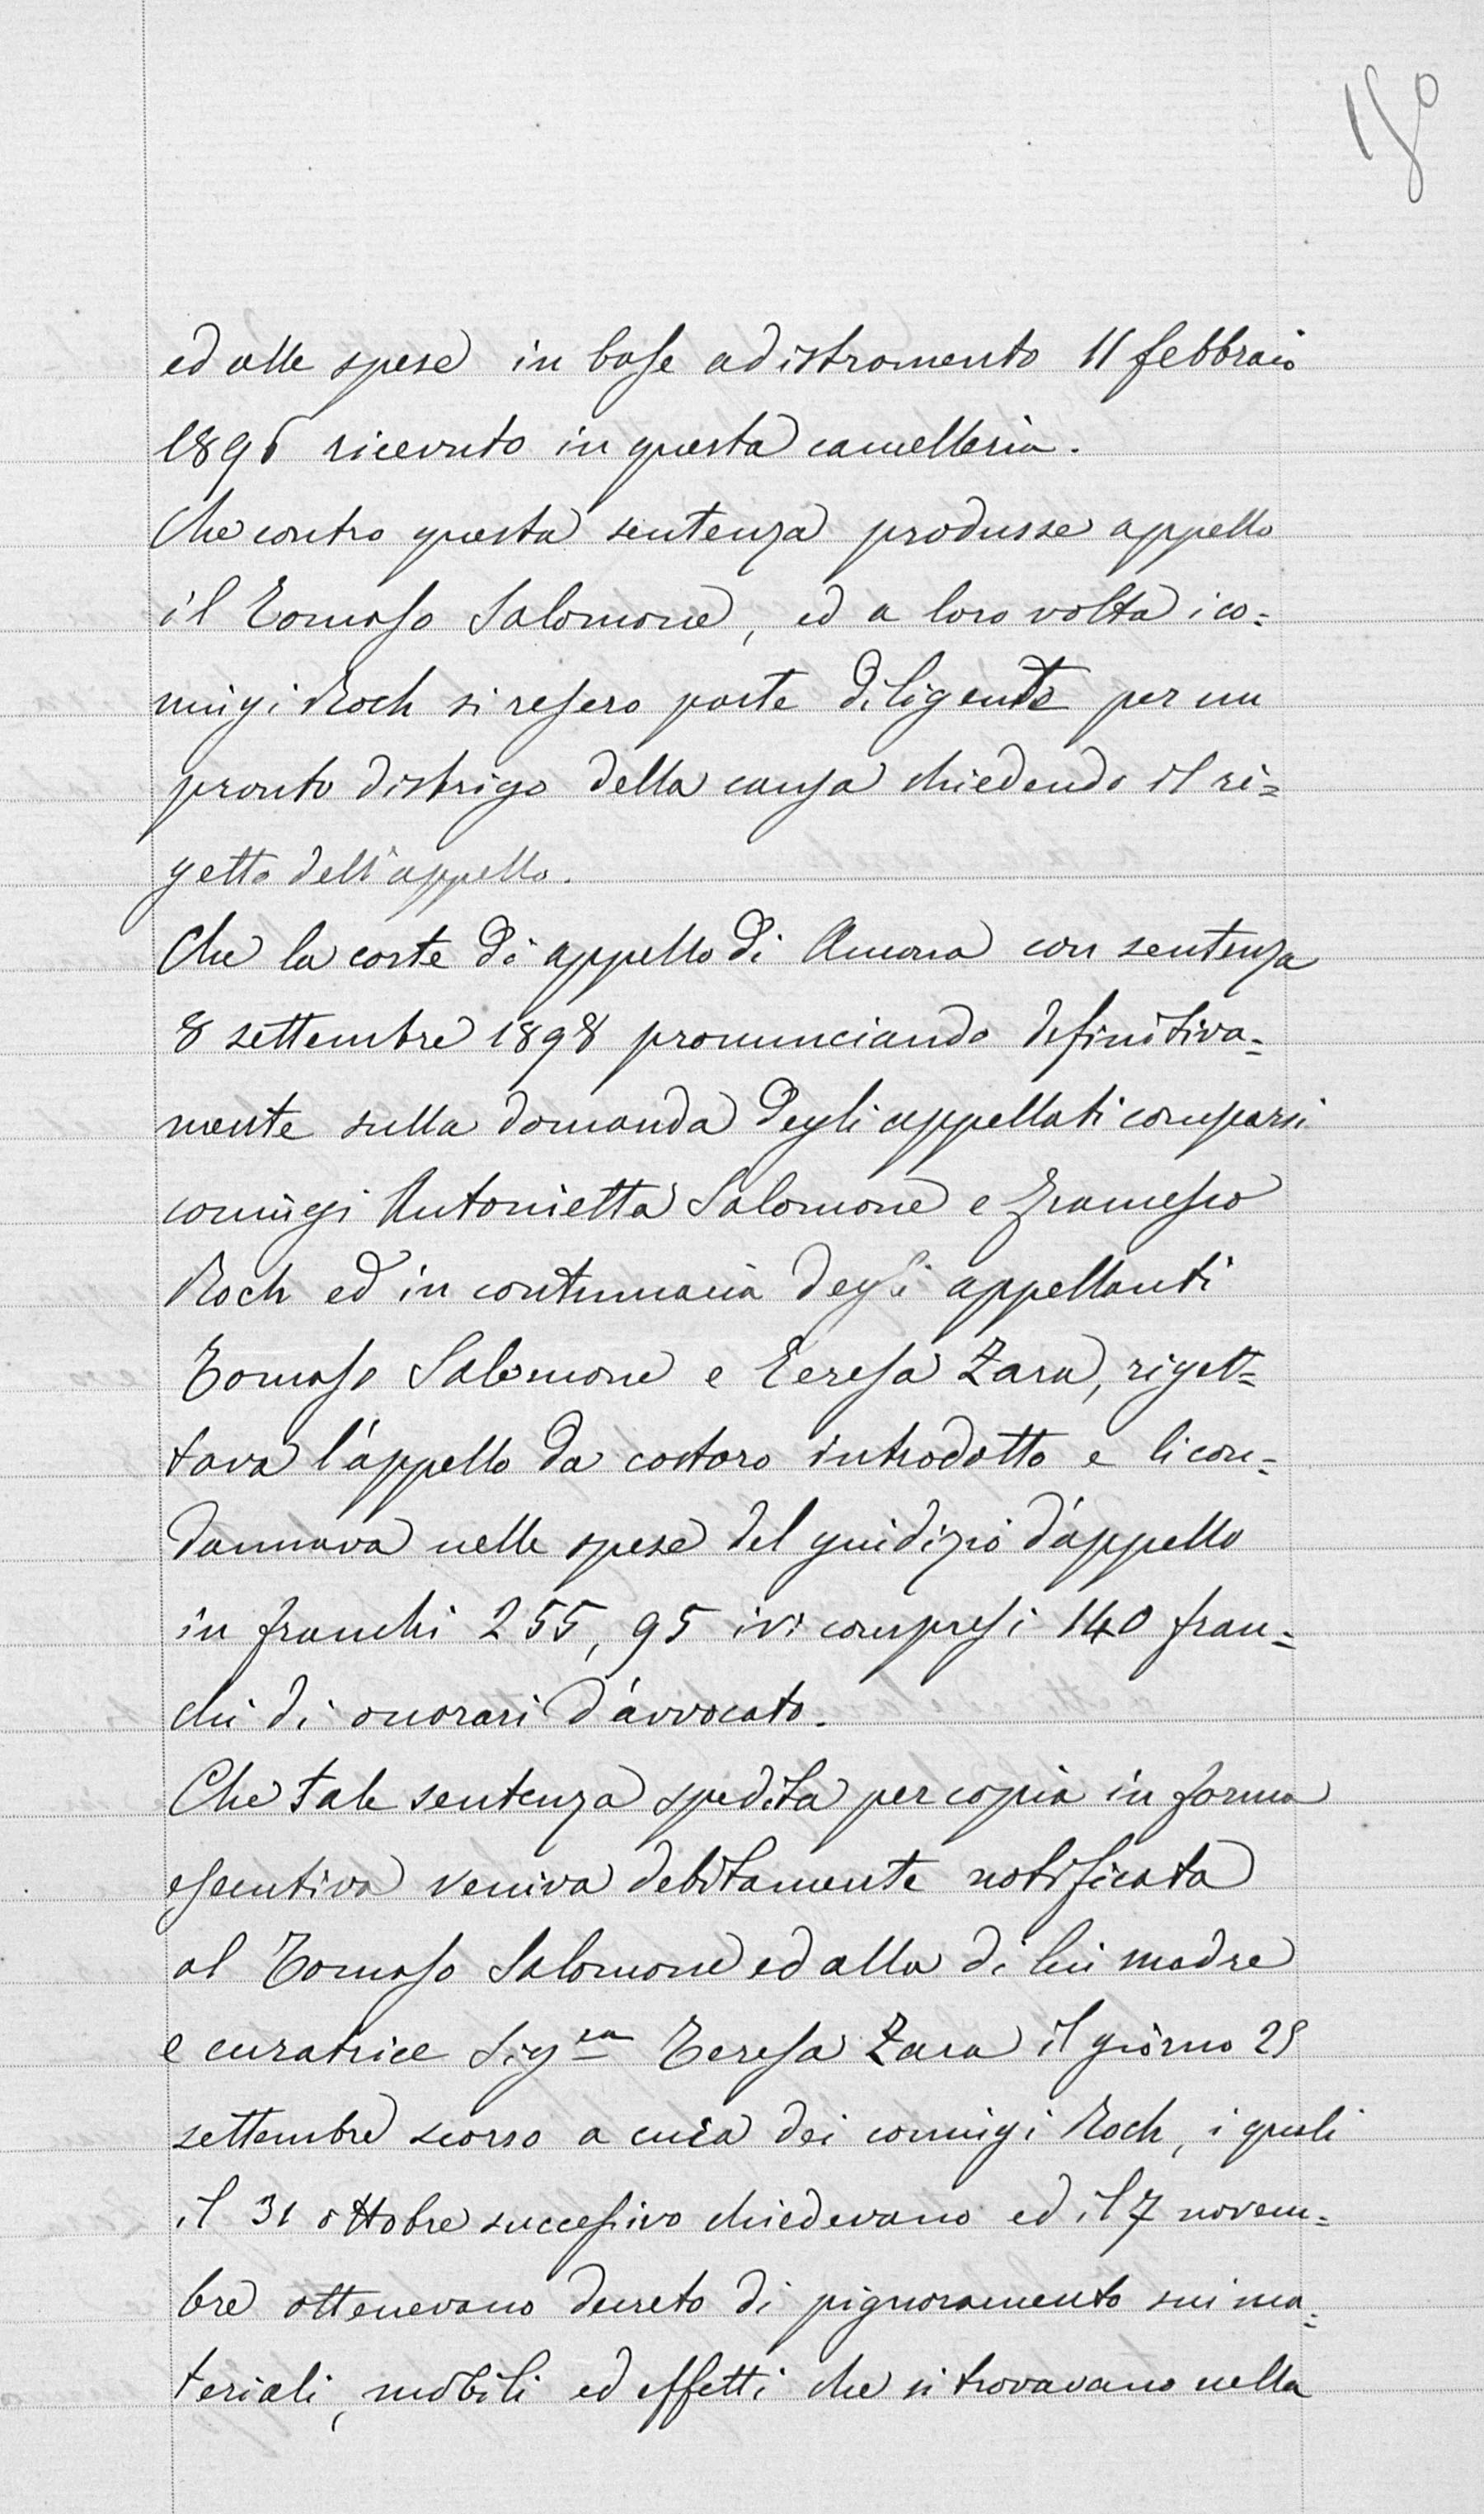 150
ed alle spese in base ad istromento 11 febbraio
1896 ricevuto in questa cancelleria.
Che contro questa sentenza produsse appello
il Tomaso Salomone, ed a loro volta i co=
niugi Roch si resero parte diligente per un
pronto distrigo della causa chiedendo il ri=
getto dell'appello.
Che la corte di appello di Ancona con sentenza
8 settembre 1898 pronunciando definitiva=
mente sulla domanda degli appellati comparsi
coniugi Antonietta Salomone e Francesco
Roch ed in contumacia degli appellanti
Tomaso Salomone e Teresa Zara, riget=
tava l'appello da costoro introdotto e li con=
dannava nelle spese del giudizio d'appello
in franchi 255,95 ivi compresi 140 fran=
chi di onorari d'avvocato.
Che tale sentenza spedita per copia in forma
esecutiva veniva debitamente notificata
al Tomaso Salomone ed alla di lui madre
e curatrice Sig.ra Teresa Zara il giorno 28
settembre scorso a cura dei coniugi Roch, i quali
il 31 ottobre successivo chiedevano ed il 7 novem=
bre ottenevano decreto di pignoramento sui ma=
teriali, mobili ed effetti che si trovavano nella